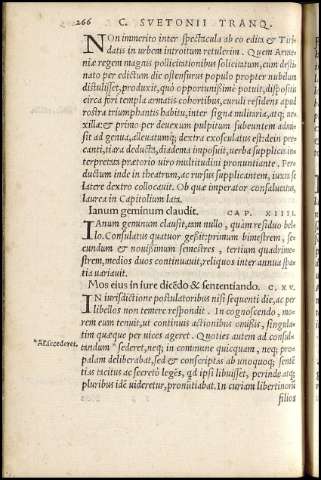 266 C. SVETONII TRANQ.
NON immerito inter spectacula ab eo edita & Tiri
datis in urbem introitum retulerim. Quem Arme
niæ regem magnis pollicitationibus solicitatum, cum desti
nato per edictum die ostensurus populo propter nubilum
distulisset, produxit, quò opportunißimè potuit, disposítis
circa fori templa armatis cohortibus, curuli residens apud
rostra triumphantis habitu, inter signa militaria, atq; ue-
xilla: & primo per deuexum pulpitum subeuntem admi-
sit ad genua, alleuatumq́; dextra exosculatus est: dein pre-
canti, tiara deducta, diadema imposuit, uerba supplicis in-
terpretata prætorio uiro multitudini pronuntiante. Per
ductum inde in theatrum, ac rursus supplicantem, iuxta se
latere dextro collocauit. Ob quæ imperator consalutatus,
laurea in Capitolium lata.
Ianum geminum claudit. CAP. XIIII.
IAnum geminum clausit, tam nullo, quàm residuo bel-
lo. Consulatus quatuor geßit: primum bimestrem, se-
cundum & nouißimum semestres, tertium quadrime-
strem, medios duos continuauit, reliquos inter annua spa-
tia uariauit.
Mos eius in iure dicẽdo & sententiando. C. XV.
IN iurisdictione postulatoribus nisi sequenti die, ac per
libellos non temere respondit. In cognoscendo, mo-
rem eum tenuit, ut continuis actionibus omißis, singula-
tim quæque per uices ageret. Quoties autem ad consul-
tandum sederet, neq; in commune quicquam, neq; pro-
palam deliberabat, sed & conscriptas ab unoquoq; senten
tias tacitus ac secretò legẽs, qd ipsi libuisset, perinde atq;
pluribus idẽ uideretur, pronũtiabat. In curiam libertinorũ
filios